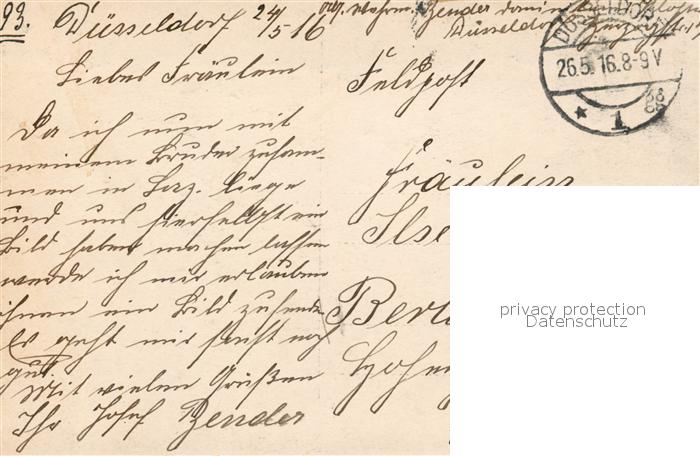 93. Düsseldorf 24/5 16
Liebes Fräulein
Da ich nun mit
meinem Bruder zusam-
men in Laz. liege
und uns hierselbst ein
Bild haben machen lassen
werde ich mir erlauben
ihnen ein Bild zusenden
Es geht mir sonst noch
gut.
Mit vielen Grüßen
Ihr Josef Zender
Zender
Düsseldorf
26.5.16.8-9V
* 1
Feldpost
Fräulein
Ilse
privacy protection
Datenschutz